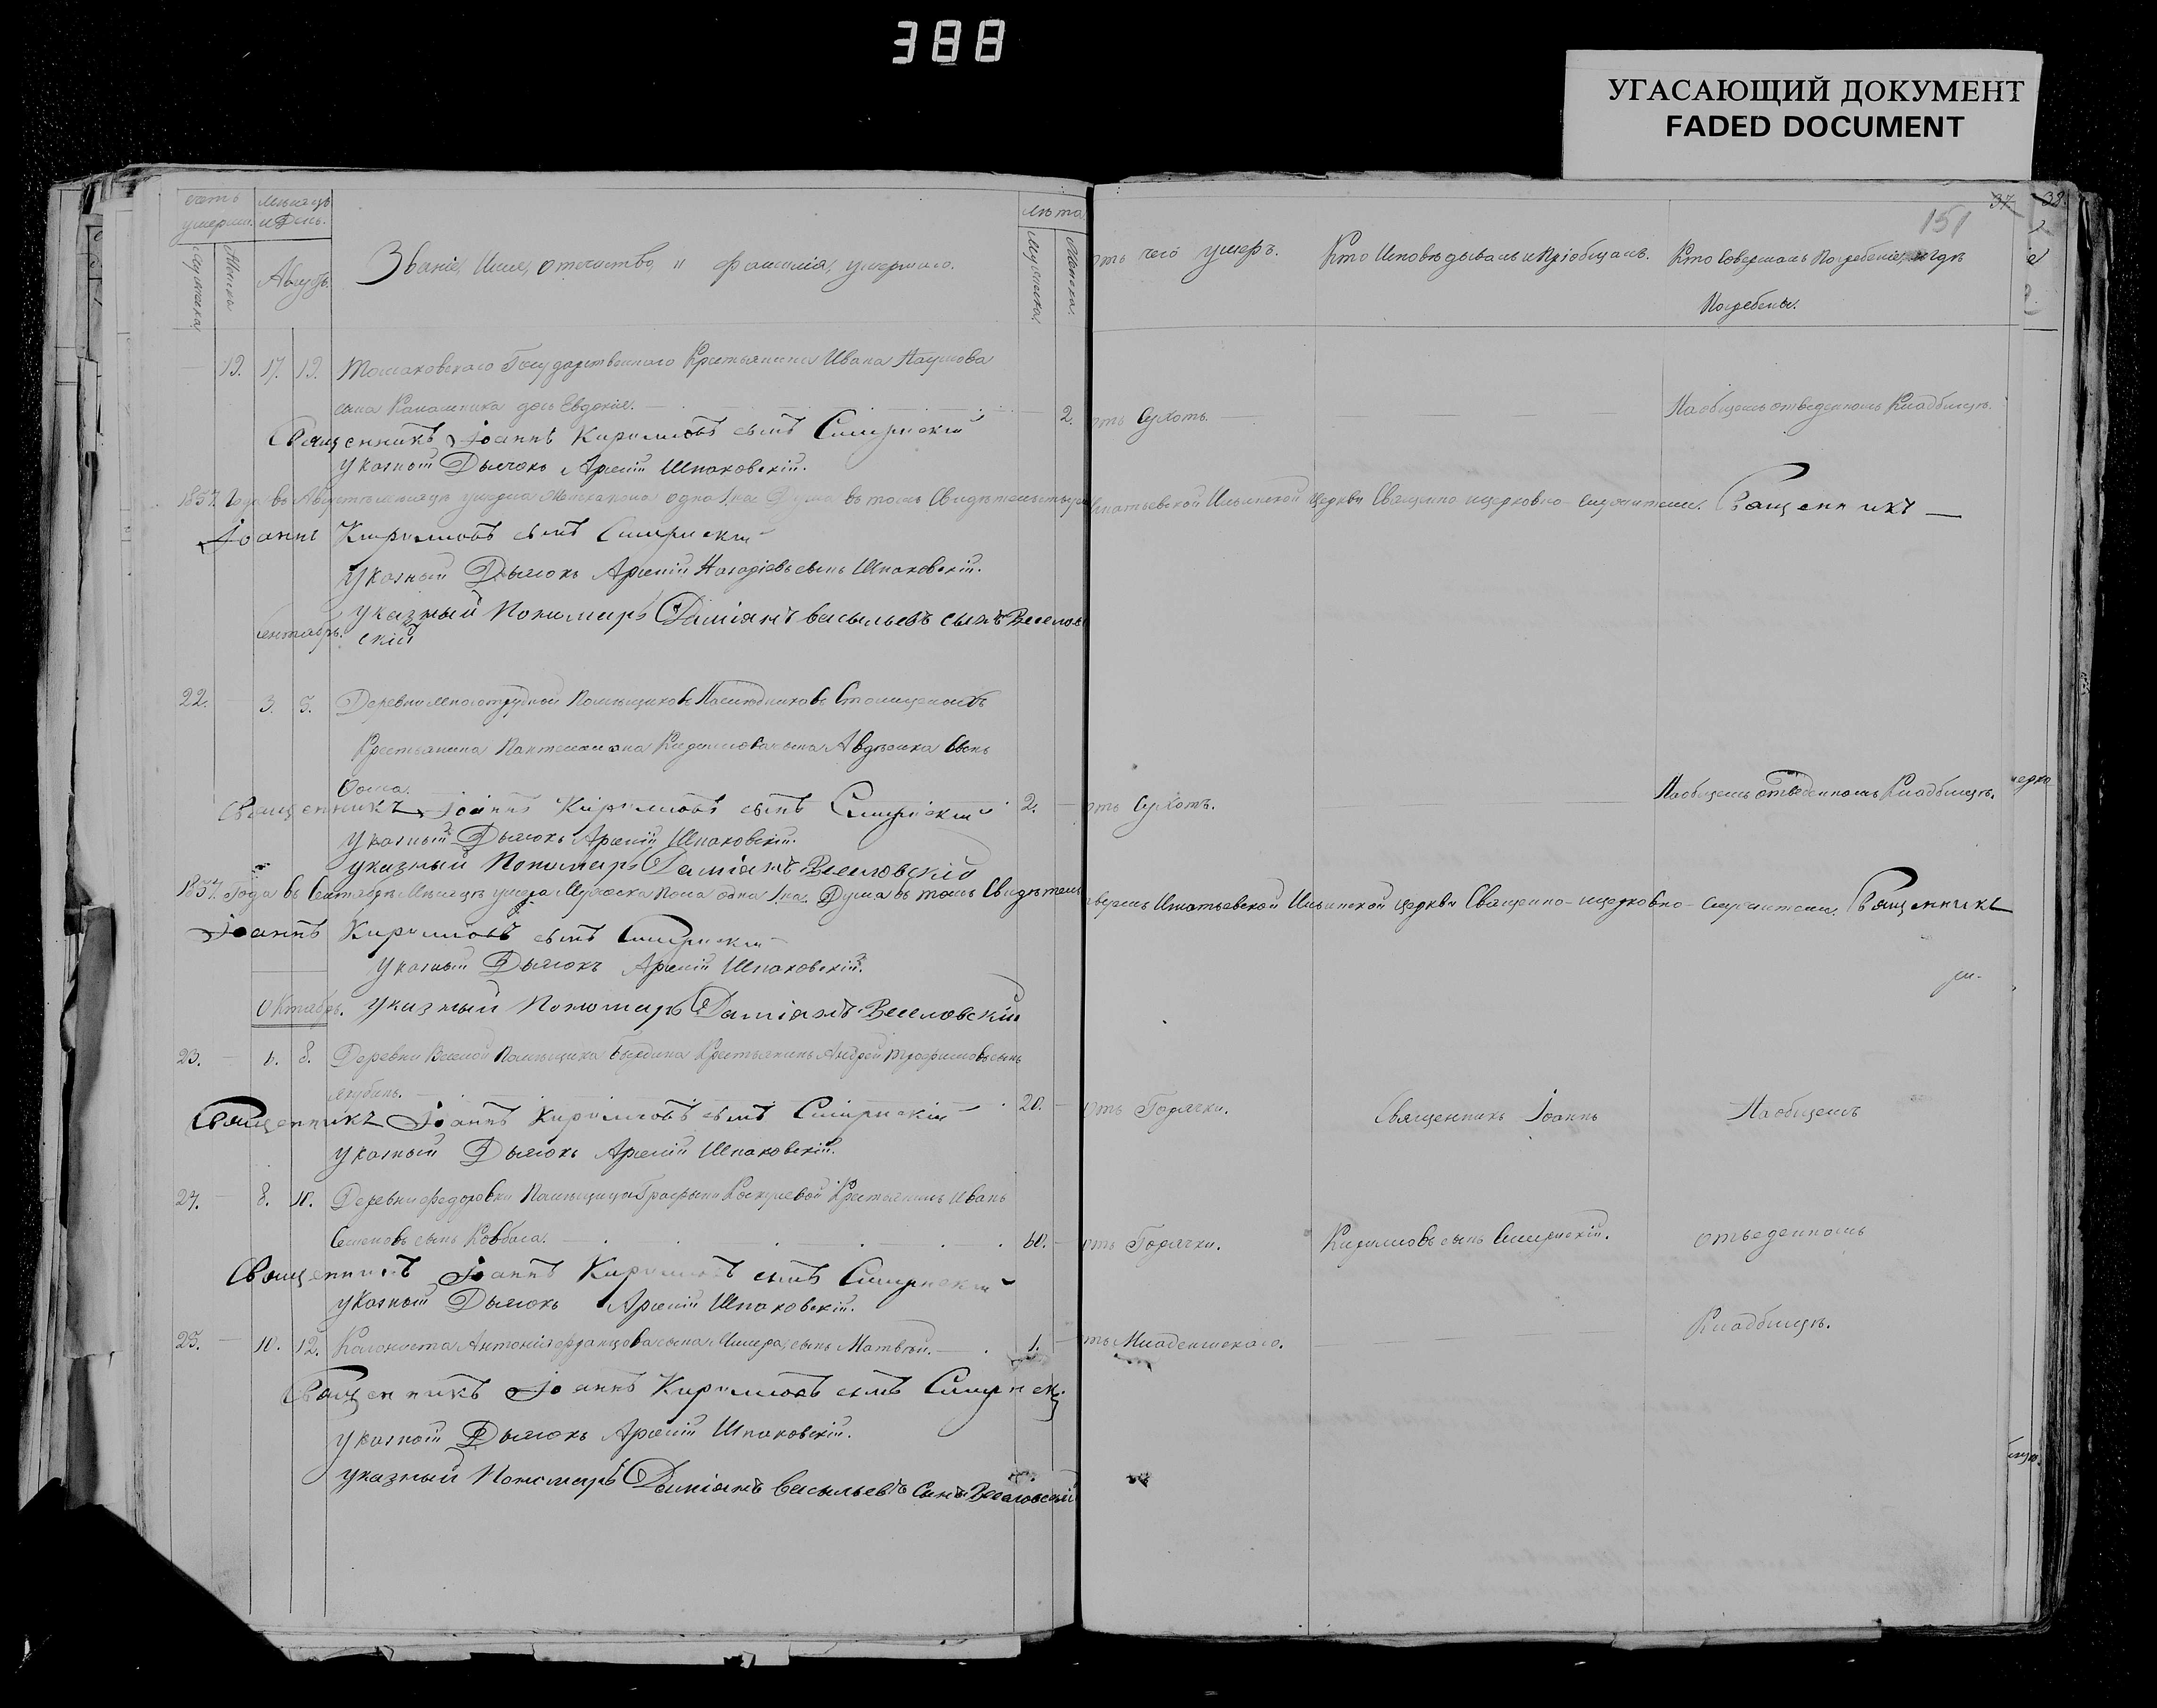 388
УГАСАЮЩИЙ ДОКУМЕНТ
FADED DOCUMENT
37. 38
151
счетъ умершихъ. Мѣсяцъ и День. Лѣта
Мужеска Женска Августъ. Званіе, Имя, отечество, и фамилія, умершаго. Мужеска. Женска. отъ чего умеръ. Кто Исповѣдывалъ и Пріобщалъ. Кто Совершалъ Погребеніе, и гдѣ
Погребены.
19. 17. 19. Томаковскаго Государственнаго Крестьянина Ивана Наумова
сына дочь Евдокія. 2. отъ Сухотъ. На общемъ отведенномъ Кладбищѣ.
Священникъ Іоаннъ Кириловъ сынъ
указный Дьячокъ Арсеній Шпаковскій.
1857. Года въ Августѣ мѣсяцѣ умерла Женска пола одна 1на Душа въ томъ Игнатьевской Ильинской Церкви Священно ицерковно-служители. Священникъ
Іоаннъ Кириловъ сынъ
Указный Дьячокъ Арсеній Назаріевъ сынъ Шпаковскій.
указный Пономарь Даміанъ васыльевъ сынъ Веселов
Сентябрь. скій
22. 3. 5. Деревни Многотрудной Помѣщиковъ Наслѣдниковъ
Крестьянина Пантелеимона сына Авдѣенка Сынъ
Фома.
2. отъ Сухотъ. На общемъ отведенномъ Кладбищѣ.
Священникъ Іоаннъ Кириловъ сынъ
указный Дьячокъ Арсеній Шпаковскій.
указный Пономарь Даміанъ Веселовскій
1857. Года въ Сентябрѣ Мѣсяцѣ умерла Мужеска пола одна 1на. Душа въ томъ Игнатьевской Ильинской церкви Священно-ицерковно-служители. Священникъ
Іоаннъ Кириловъ сынъ
Указный Дьячокъ Арсеній Шпаковскій.
Октябрь. указный Пономарь Даміанъ Веселовскій
23. 8. Деревни Веселой Помѣщика Крестьянинъ Андрей Трофимовъ сынъ
20. отъ Горячки. Священникъ Іоаннъ На общемъ
Священникъ Іоаннъ Кириловъ сынъ
указный Дьячокъ Арсеній Шпаковскій.
24. 8. 10. Деревни Федоровки Помѣщицы Графыни Крестьянинъ Иванъ
Семеновъ сынъ Ковбаса. 60. отъ Горячки. Кириловъ сынъ отведенномъ
Священникъ Іоаннъ Кириловъ сынъ
указный Дьячокъ Арсеній Шпаковскій.
Кладбищѣ.
25. 10. 12. Колониста Антонія францова сына сынъ Матвѣй. 1. отъ Младенческаго.
Священникъ Іоаннъ Кириловъ сынъ
указный Дьячокъ Арсеній Шпаковскій.
указный Пономарь Даміанъ васыльевъ Сынъ Веселовскій